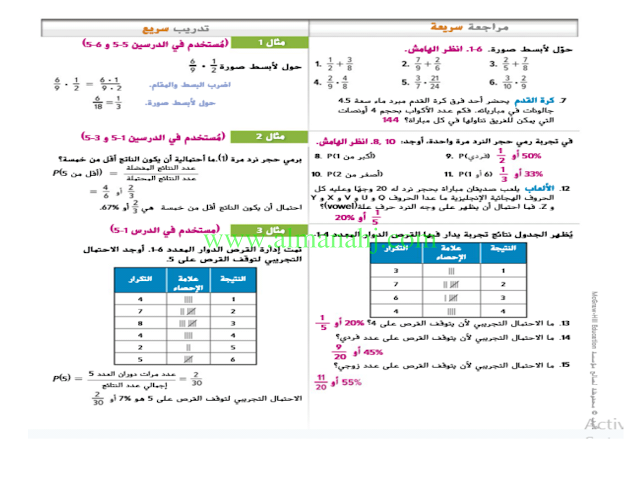 مراجعة سريعة
حوّل لأبسط صورة. 6-1. انظر الهامش.
1. 1/2 + 3/8
2. 7/9 + 2/6
3. 2/5 + 7/8
4. 2/9 · 4/8
5. 3/7 · 21/24
6. 3/10 · 2/9
7. كرة القدم يحضر أحد فرق كرة القدم مبرد ماء سعة 4.5
جالونات في مبارياته. فكم عدد الأكواب بحجم 4 أونصات
التي يمكن للفريق تناولها في كل مباراة؟ 144
في تجربة رمي حجر النرد مرة واحدة، أوجد: 10 ,8. انظر الهامش.
8. P(أكبر من 1)
9. P(فردي) 1/2 أو 50%
10. P(أصغر من 2)
11. P(1 أو 6) 1/3 أو 33%
12. الألعاب يلعب صديقان مباراة بحجر نرد له 20 وجهًا وعليه كل
الحروف الهجائية الإنجليزية ما عدا الحروف Q و U و V و X و Y
و Z. فما احتمال أن يظهر على وجه النرد حرف علة(vowel)؟
1/5 أو 20%
يُظهر الجدول نتائج تجربة يدار فيها القرص الدوار المعدد 4-1.
النتيجة علامة الإحصاء التكرار
1 ||| 3
2 7
3 6
4 |||| 4
13. ما الاحتمال التجريبي لأن يتوقف القرص على 4؟ 20% أو 1/5
14. ما الاحتمال التجريبي لأن يتوقف القرص على عدد فردي؟
9/20 أو 45%
15. ما الاحتمال التجريبي لأن يتوقف القرص على عدد زوجي؟
11/20 أو 55%
تدريب سريع
مثال 1 (مُستخدم في الدرسين 5-5 و 6-5)
حول لأبسط صورة 6/9 · 1/2
6/9 · 1/2 = 6 · 1/9 · 2 اضرب البسط والمقام.
6/18 = 1/3 حول لأبسط صورة.
مثال 2 (مُستخدم في الدرسين 1-5 و 3-5)
يرمي حجر نرد مرة (1). ما احتمالية أن يكون الناتج أقل من خمسة؟
P(أقل من 5) = عدد النتائج المفضلة / عدد النتائج المحتملة
= 4/6 أو 2/3
احتمال أن يكون الناتج أقل من خمسة هي 2/3 أو 67%.
مثال 3 (مُستخدم في الدرس 1-5)
تمت إدارة القرص الدوار المعدد 6-1. أوجد الاحتمال
التجريبي لتوقف القرص على 5.
النتيجة علامة الإحصاء التكرار
1 |||| 4
2 7
3 8
4 |||| 4
5 || 2
6 5
P(5) = عدد مرات دوران العدد 5 / إجمالي عدد النتائج = 2/30
الاحتمال التجريبي لتوقف القرص على 5 هو 7% أو 2/30
www.almanahj.com
McGraw-Hill Education
Activ